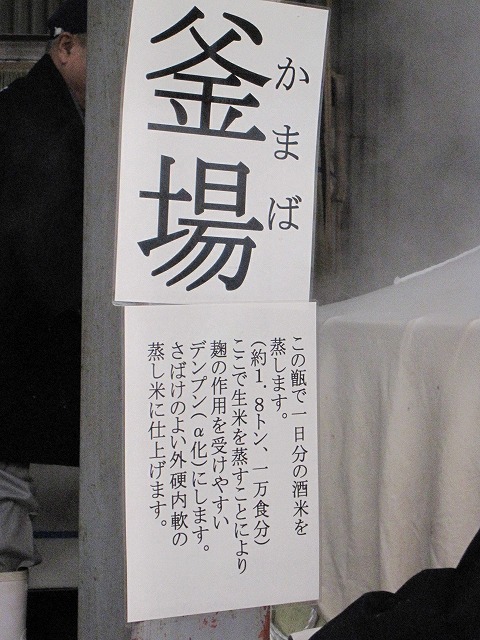 釜場
かまば
この甑で一日分の酒米を
蒸します。
(約1.8トン、一万食分)
ここで生米を蒸すことにより
麹の作用を受けやすい
デンプン(α化)にします。
さばけのよい外硬内軟の
蒸し米に仕上げます。